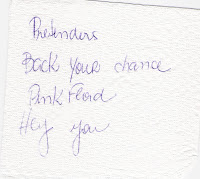 Pretenders
Back your chance
Pink Floid
Hey you